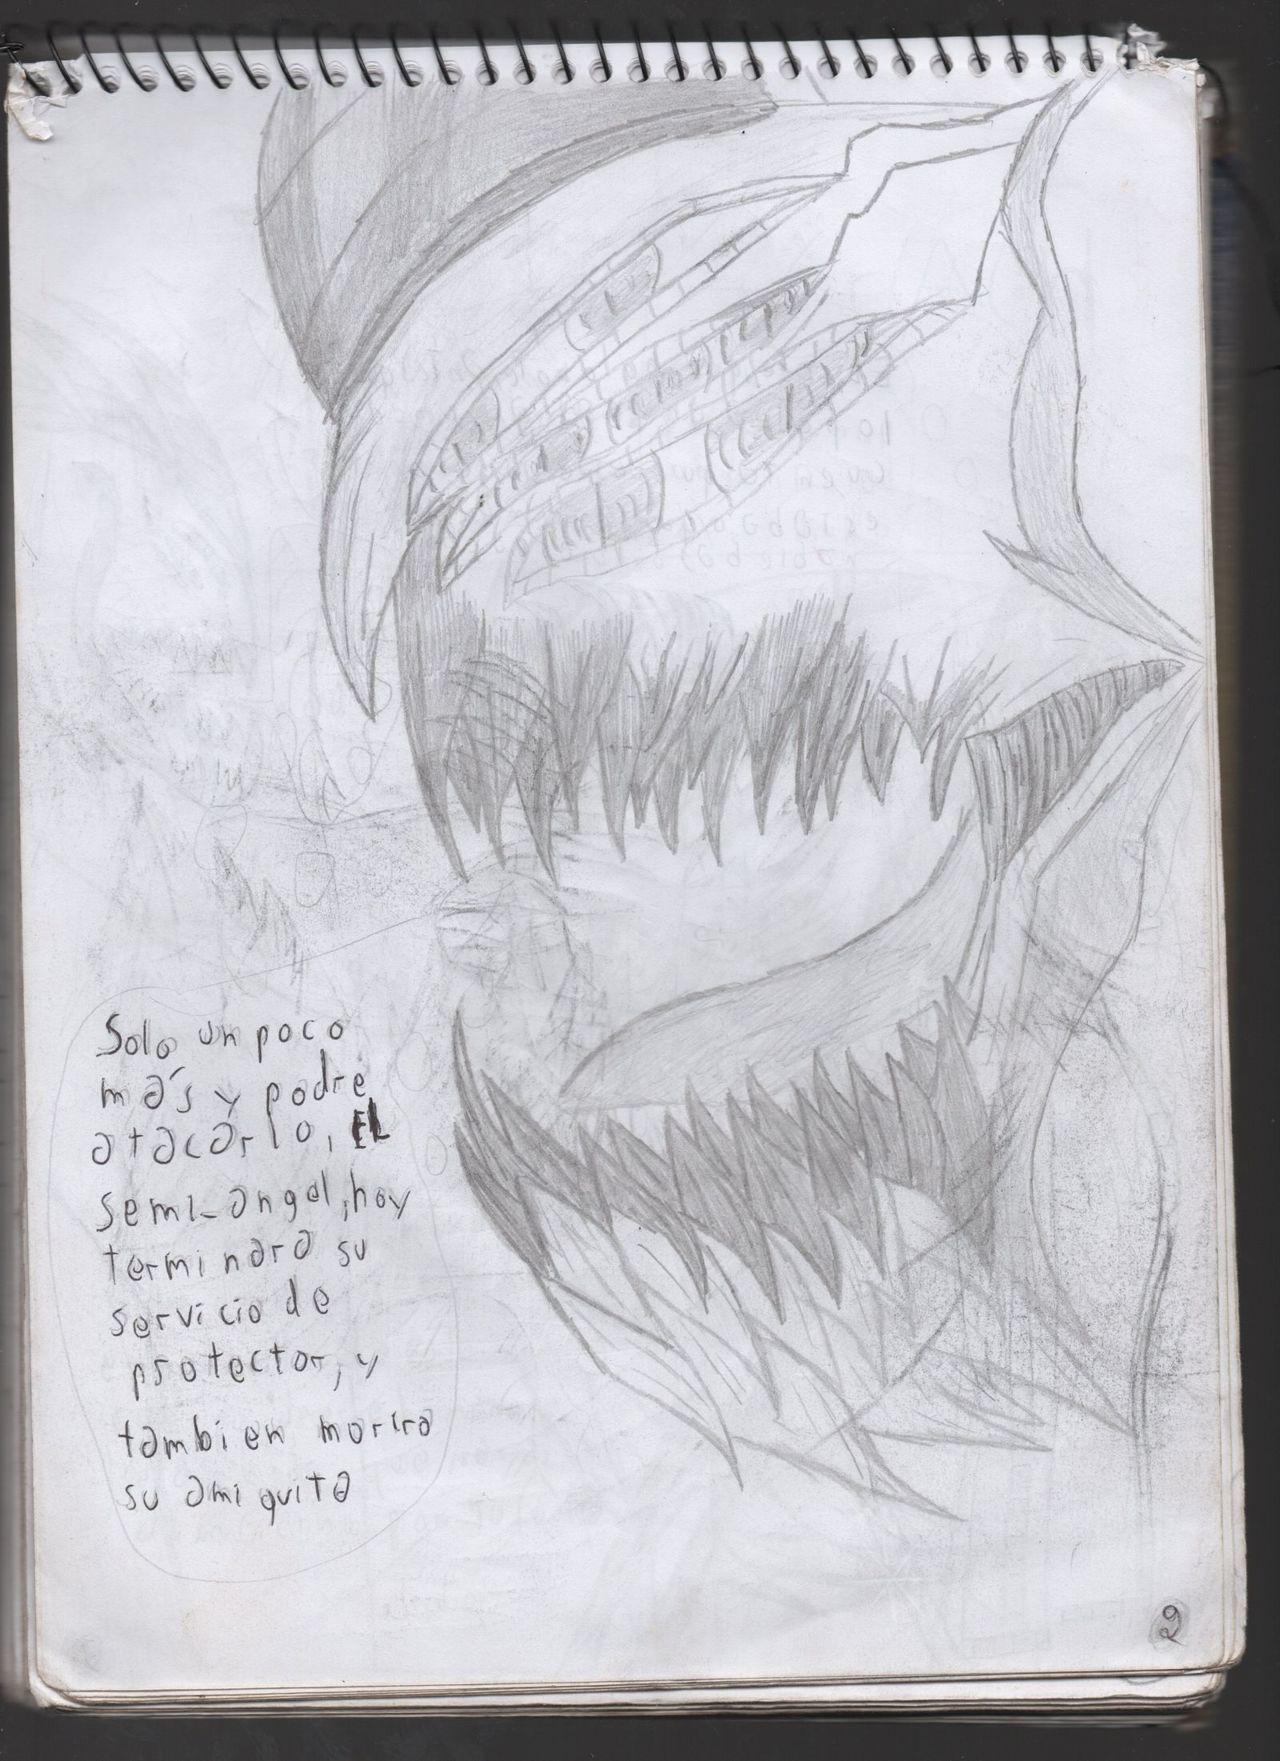 Solo un poco
más y podre
atacarlo, EL
semi-angel, hoy
terminara su
servicio de
protector, y
tambien morira
su amiguita
9